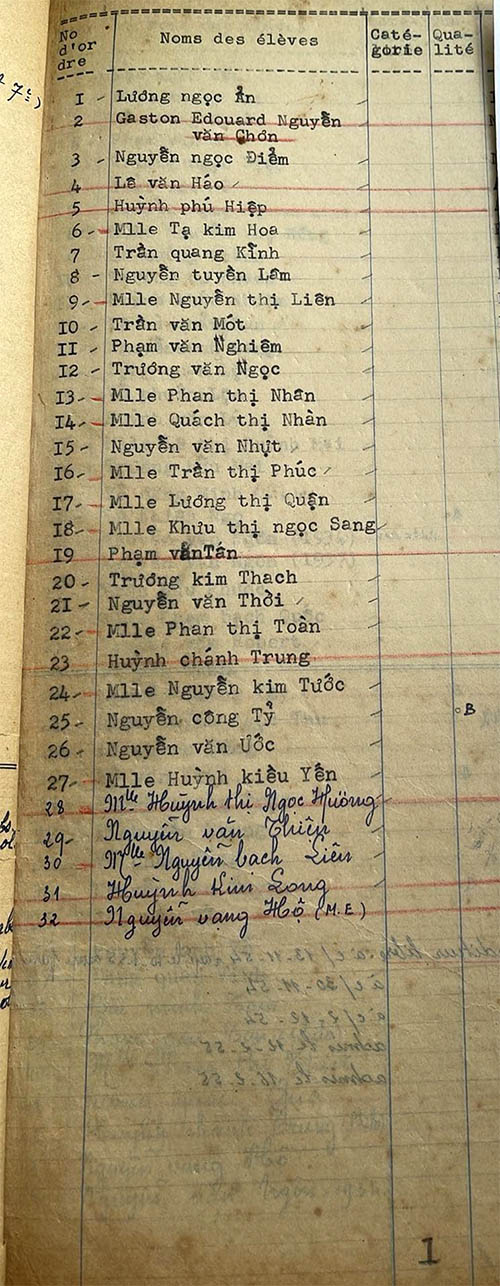 7è)
No d'or dre
Noms des élèves
Caté- gorie
Qua- lité
1 - Lương ngọc Ẩn
2 Gaston Edouard Nguyễn
văn Chởn
3 - Nguyễn ngọc Điểm
4 Lê văn Háo
5 Huỳnh phú Hiệp
6 - Mlle Tạ kim Hoa
7 Trần quang Kỉnh
8 - Nguyễn tuyền Lâm
9 - Mlle Nguyễn thị Liên
10 - Trần văn Mót
11 - Phạm văn Nghiêm
12 - Trương văn Ngọc
13 - Mlle Phan thị Nhân
14 - Mlle Quách thị Nhàn
15 - Nguyễn văn Nhựt
16 - Mlle Trần thị Phúc
17 - Mlle Lương thị Quận
18 - Mlle Khưu thị ngọc Sang
19 Phạm vănTấn
20 - Trương kim Thach
21 - Nguyễn văn Thời
22 - Mlle Phan thị Toàn
23 Huỳnh chánh Trung
24 - Mlle Nguyễn kim Tước
25 - Nguyễn công Tỷ
B
26 - Nguyễn văn Ước
27 - Mlle Huỳnh kiều Yến
28 Mlle Huỳnh thị Ngọc Hương
29 - Nguyễn văn Thiện
30 Mlle Nguyễn bạch Liên
31 Huỳnh Kim Long
32 Nguyễn vạng Hộ (M.E.)
1